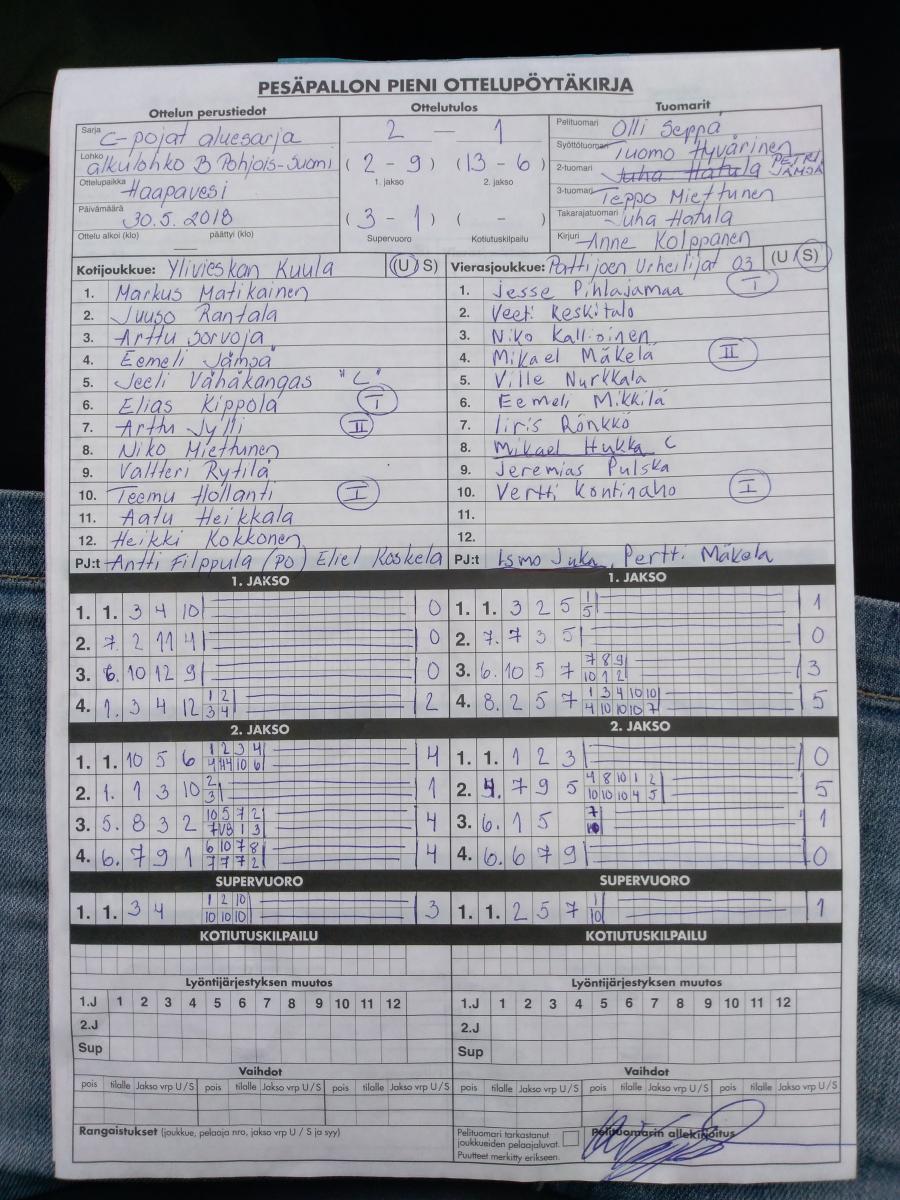 PESÄPALLON PIENI OTTELUPÖYTÄKIRJA
Ottelun perustiedot Ottelutulos Tuomarit
Sarja C-pojat aluesarja 2 — 1 Pelituomari Olli Seppä
Lohko alkulohko B Pohjois-Suomi (2 - 9) (13 - 6) Syöttötuomari Tuomo Hyvärinen
1. jakso 2. jakso 2-tuomari Juha Hatula PETRI JÄMSÄ
Ottelupaikka Haapavesi 3-tuomari Teppo Miettunen
Päivämäärä 30.5.2018 (3 - 1) ( - ) Takarajatuomari Juha Hatula
Ottelu alkoi (klo) — päättyi (klo) Supervuoro Kotiutuskilpailu Kirjuri Anne Kolppanen
Kotijoukkue: Ylivieskan Kuula (U S) Vierasjoukkue: Pattijoen Urheilijat 03 (U S)
1. Markus Matikainen 1. Jesse Pihlajamaa I
2. Juuso Rantala 2. Veeti Keskitalo
3. Arttu Sorvoja 3. Niko Kallioinen
4. Eemeli Jämsä 4. Mikael Mäkelä II
5. Jeeli Vähäkangas "C" 5. Ville Nurkkala
6. Elias Kippola I 6. Eemeli Mikkilä
7. Arttu Jylli II 7. Iiris Rönkkö
8. Niko Miettunen 8. Mikael Hukka C
9. Valtteri Rytilä 9. Jeremias Pulska
10. Teemu Hollanti I 10. Vertti Kontinaho I
11. Aatu Heikkala 11.
12. Heikki Kokkonen 12.
PJ:t Antti Filppula (PO) Eliel Koskela PJ:t Ismo Juka, Pertti Mäkelä
1. JAKSO 1. JAKSO
1. 1. 3 4 10 0 1. 1. 3 2 5 1 5 1
2. 7. 2 11 4 0 2. 7. 7 3 5 0
3. 6. 10 12 9 0 3. 6. 10 5 7 7 8 9 10 1 2 3
4. 1. 3 4 12 1 2 3 4 2 4. 8. 2 5 7 1 3 4 10 10 4 10 10 10 7 5
2. JAKSO 2. JAKSO
1. 1. 10 5 6 1 2 3 4 10 6 4 1. 1. 1 2 3 0
2. 1. 1 3 10 2 3 1 2. 4. 7 9 5 4 8 10 1 2 10 10 10 4 5 5
3. 5. 8 3 2 10 5 7 2 1 3 4 3. 6. 1 5 7 10 1
4. 6. 7 9 1 6 10 7 8 7 7 7 2 4 4. 6. 6 7 9 0
SUPERVUORO SUPERVUORO
1. 1. 3 4 1 2 10 10 10 10 3 1. 1. 2 5 7 1 10 1
KOTIUTUSKILPAILU KOTIUTUSKILPAILU
Lyöntijärjestyksen muutos Lyöntijärjestyksen muutos
1.J 1 2 3 4 5 6 7 8 9 10 11 12 1.J 1 2 3 4 5 6 7 8 9 10 11 12
2.J 2.J
Sup Sup
Vaihdot Vaihdot
pois tilalle Jakso vrp U/S pois tilalle Jakso vrp U/S pois tilalle Jakso vrp U/S pois tilalle Jakso vrp U/S pois tilalle Jakso vrp U/S pois tilalle Jakso vrp U/S
Rangaistukset (joukkue, pelaaja nro, jakso vrp U / S ja syy) Pelituomari tarkastanut Pelituomarin allekirjoitus
joukkueiden pelaajaluvat.
Puutteet merkitty erikseen.